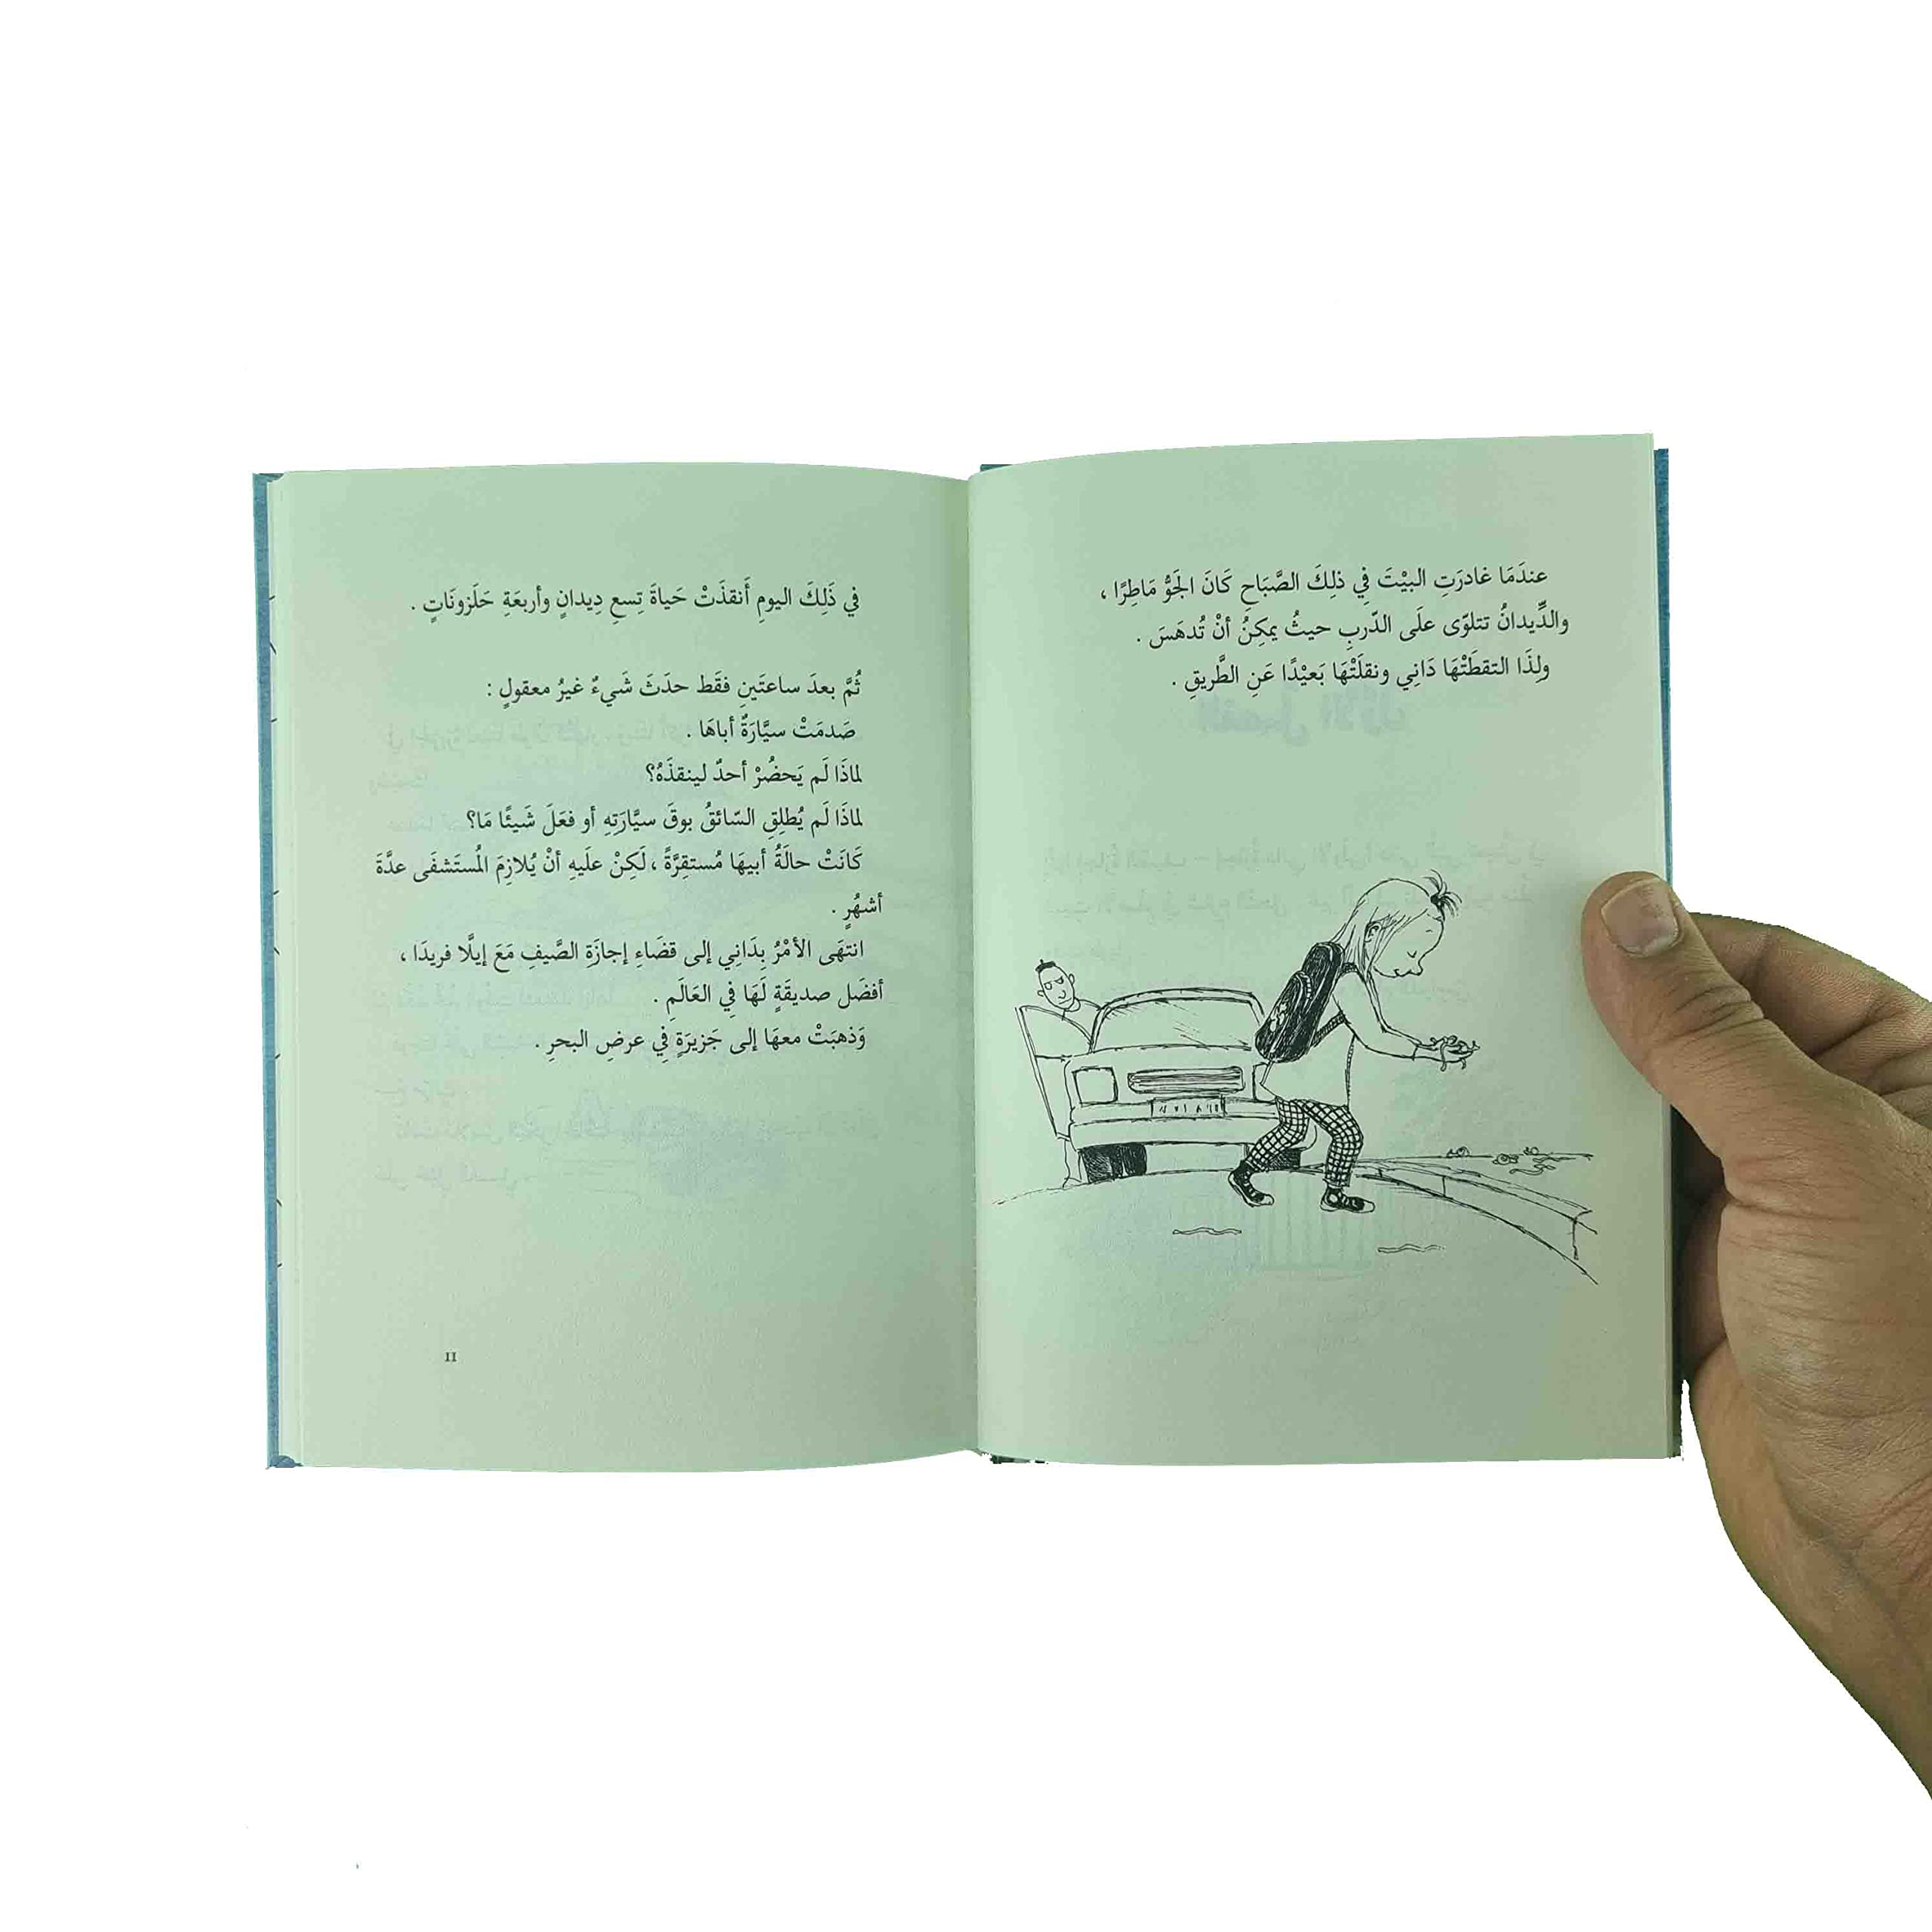 عندَمَا غادرَتِ البيْتَ فِي ذلِكَ الصَّبَاحِ كَانَ الجَوُّ مَاطِرًا ،
والدِّيدانُ تتلوّى علَى الدّربِ حيثُ يمكِنُ أنْ تُدهَسَ .
ولِذَا التقطَتْهَا دَانِي ونقلَتْهَا بَعيْدًا عَنِ الطَّريقِ .
في ذَلِكَ اليومِ أَنقذَتْ حَياةَ تِسعِ دِيدانٍ وأربعَةِ حَلَزونَاتٍ .
ثُمَّ بعدَ ساعتَينِ فقَط حدَثَ شَيءٌ غيرُ معقولٍ :
صَدمَتْ سيَّارَةٌ أباهَا .
لماذَا لَم يَحضُرْ أحدٌ لينقذَهُ؟
لماذَا لَم يُطلِقِ السّائقُ بوقَ سيَّارَتِهِ أو فعَلَ شَيئًا مَا؟
كَانَتْ حالَةُ أبيهَا مُستقِرَّةً ، لَكِنْ علَيهِ أنْ يُلازِمَ المُستَشفَى عدَّةَ
أشهُرٍ .
انتهَى الأمْرُ بِدَانِي إلى قضَاءِ إجازَةِ الصَّيفِ مَعَ إيلَّا فريدَا ،
أفضَل صديقَةٍ لَهَا فِي العَالَمِ .
وَذهبَتْ معهَا إلى جَزيرَةٍ فِي عرضِ البحرِ .
11